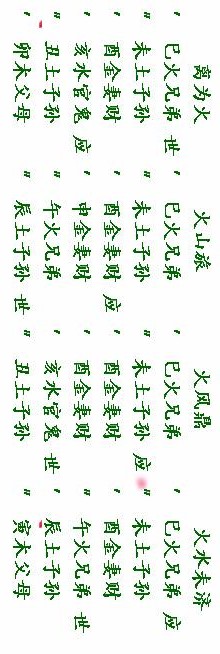 离为火 火山旅 火风鼎 火水未济
′ 巳火兄弟 世 ′ 巳火兄弟 ′ 巳火兄弟 ′ 巳火兄弟 应
″ 未土子孙 ″ 未土子孙 ″ 未土子孙 应 ″ 未土子孙
′ 酉金妻财 ′ 酉金妻财 应 ′ 酉金妻财 ′ 酉金妻财
′ 亥水官鬼 应 ′ 申金妻财 ′ 酉金妻财 ″ 午火兄弟 世
″ 丑土子孙 ″ 午火兄弟 ′ 亥水官鬼 世 ′ 辰土子孙
′ 卯木父母 ″ 辰土子孙 世 ″ 丑土子孙 ″ 寅木父母